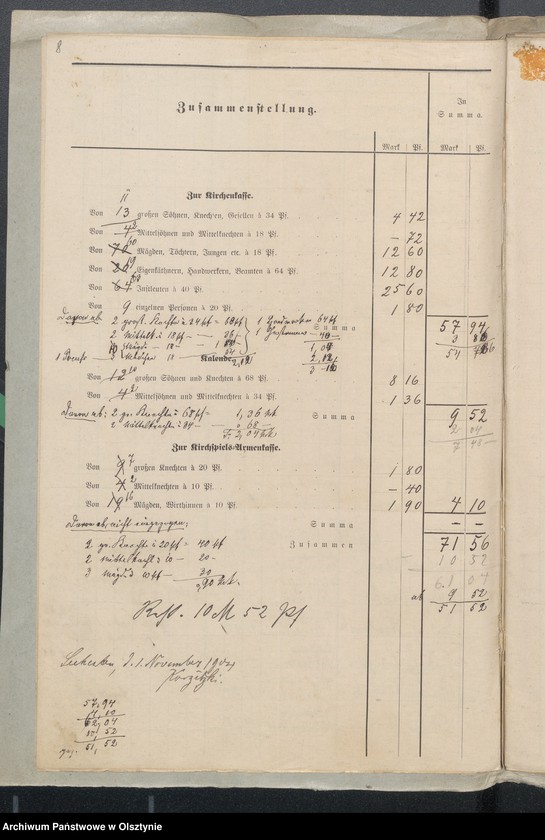 8
Zusammenstellung.
In
Summa.
Mark Pf. Mark Pf.
Zur Kirchenkasse.
11
Von 13 großen Söhnen, Knechten, Gesellen à 34 Pf. 4 42
Von 4 2 Mittelsöhnen und Mittelknechten à 18 Pf. — 72
Von 70 Mägden, Töchtern, Jungen etc. à 18 Pf. 12 60
Von 20 19 Eigenkäthnern, Handwerkern, Beamten à 64 Pf. 12 80
Von 64 Instleuten à 40 Pf. 25 60
Von 9 einzelnen Personen à 20 Pf. 1 80
Summa 57 94
Davon ab 2 groß. Knechte à 34 Pf = 68 Pf 1 64 Pf
2 Mittelk. à 18 Pf — 36
Kalende.
54
Von 12 10 großen Söhnen und Knechten à 68 Pf. 8 16
Von 4 2 Mittelsöhnen und Mittelknechten à 34 Pf. 1 36
Davon ab: 2 gr. Knechte à 68 Pf = 1,36 Mk Summa 9 52
2 Mittelknechte à 34 — 68 — 2 04
2,04 Mk 7 48
Zur Kirchspiels-Armenkasse.
Von 9 7 großen Knechten à 20 Pf. 1 80
Von 4 2 Mittelknechten à 10 Pf. — 40
Von 19 16 Mägden, Wirthinnen à 10 Pf. 1 90 4 10
Davon ab nicht eingegangen: Summa — —
2 gr. Knechte à 20 Pf = 40 Pf Zusammen 71 56
2 Mittelknecht à 10 — 20 — 10 52
3 Mägde 10 Pf — 30 61 04
,90 Mk. ab 9 52
51 52
Rest. 10 M 52 Pf
d. 1. November
57,94
4,10
62,04
52
51,52
Archiwum Państwowe w Olsztynie